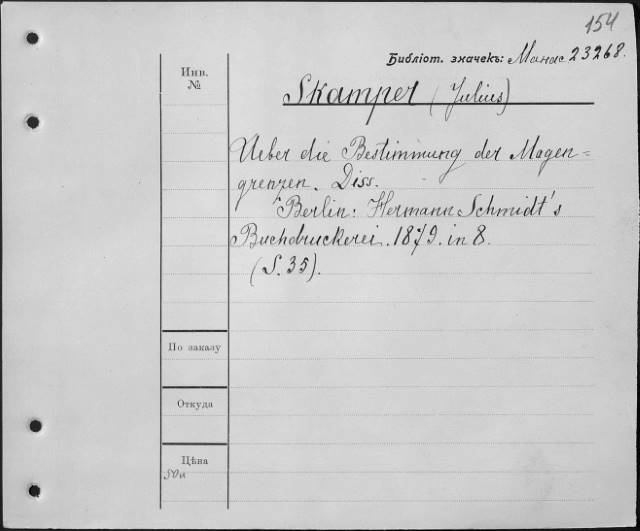 154
Библіот. значекъ: Манас 23268.
Инв.
№
Skamper (Julius)
Ueber die Bestimmung der Magen=
grenzen. Diss.
Berlin: Hermann Schmidt's
Buchdruckerei. 1879. in 8.
(S. 35).
По заказу
Откуда
Цѣна